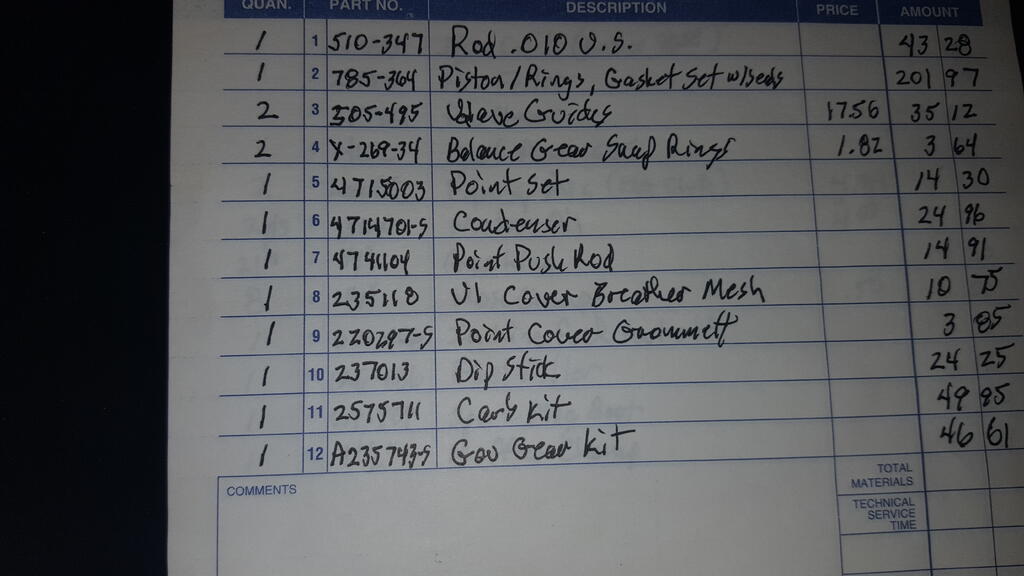 QUAN. PART NO. DESCRIPTION PRICE AMOUNT
1 1 510-347 Rod .010 U.S. 43 28
1 2 785-364 Piston/Rings, Gasket Set w/seals 201 97
2 3 505-495 Valave Guides 17.56 35 12
2 4 X-269-34 Balance Gear Snap Rings 1.82 3 64
1 5 4715003 Point Set 14 30
1 6 4714701-S Condenser 24 96
1 7 4741104 Point Push Rod 14 91
1 8 235118 Vl Cover Breather Mesh 10 75
1 9 220297-S Point Cover Grommett 3 85
1 10 237013 Dip Stick 24 25
1 11 2575711 Carb Kit 49 95
1 12 A235743-S Gov Gear Kit 46 61
COMMENTS
TOTAL
MATERIALS
TECHNICAL
SERVICE
TIME